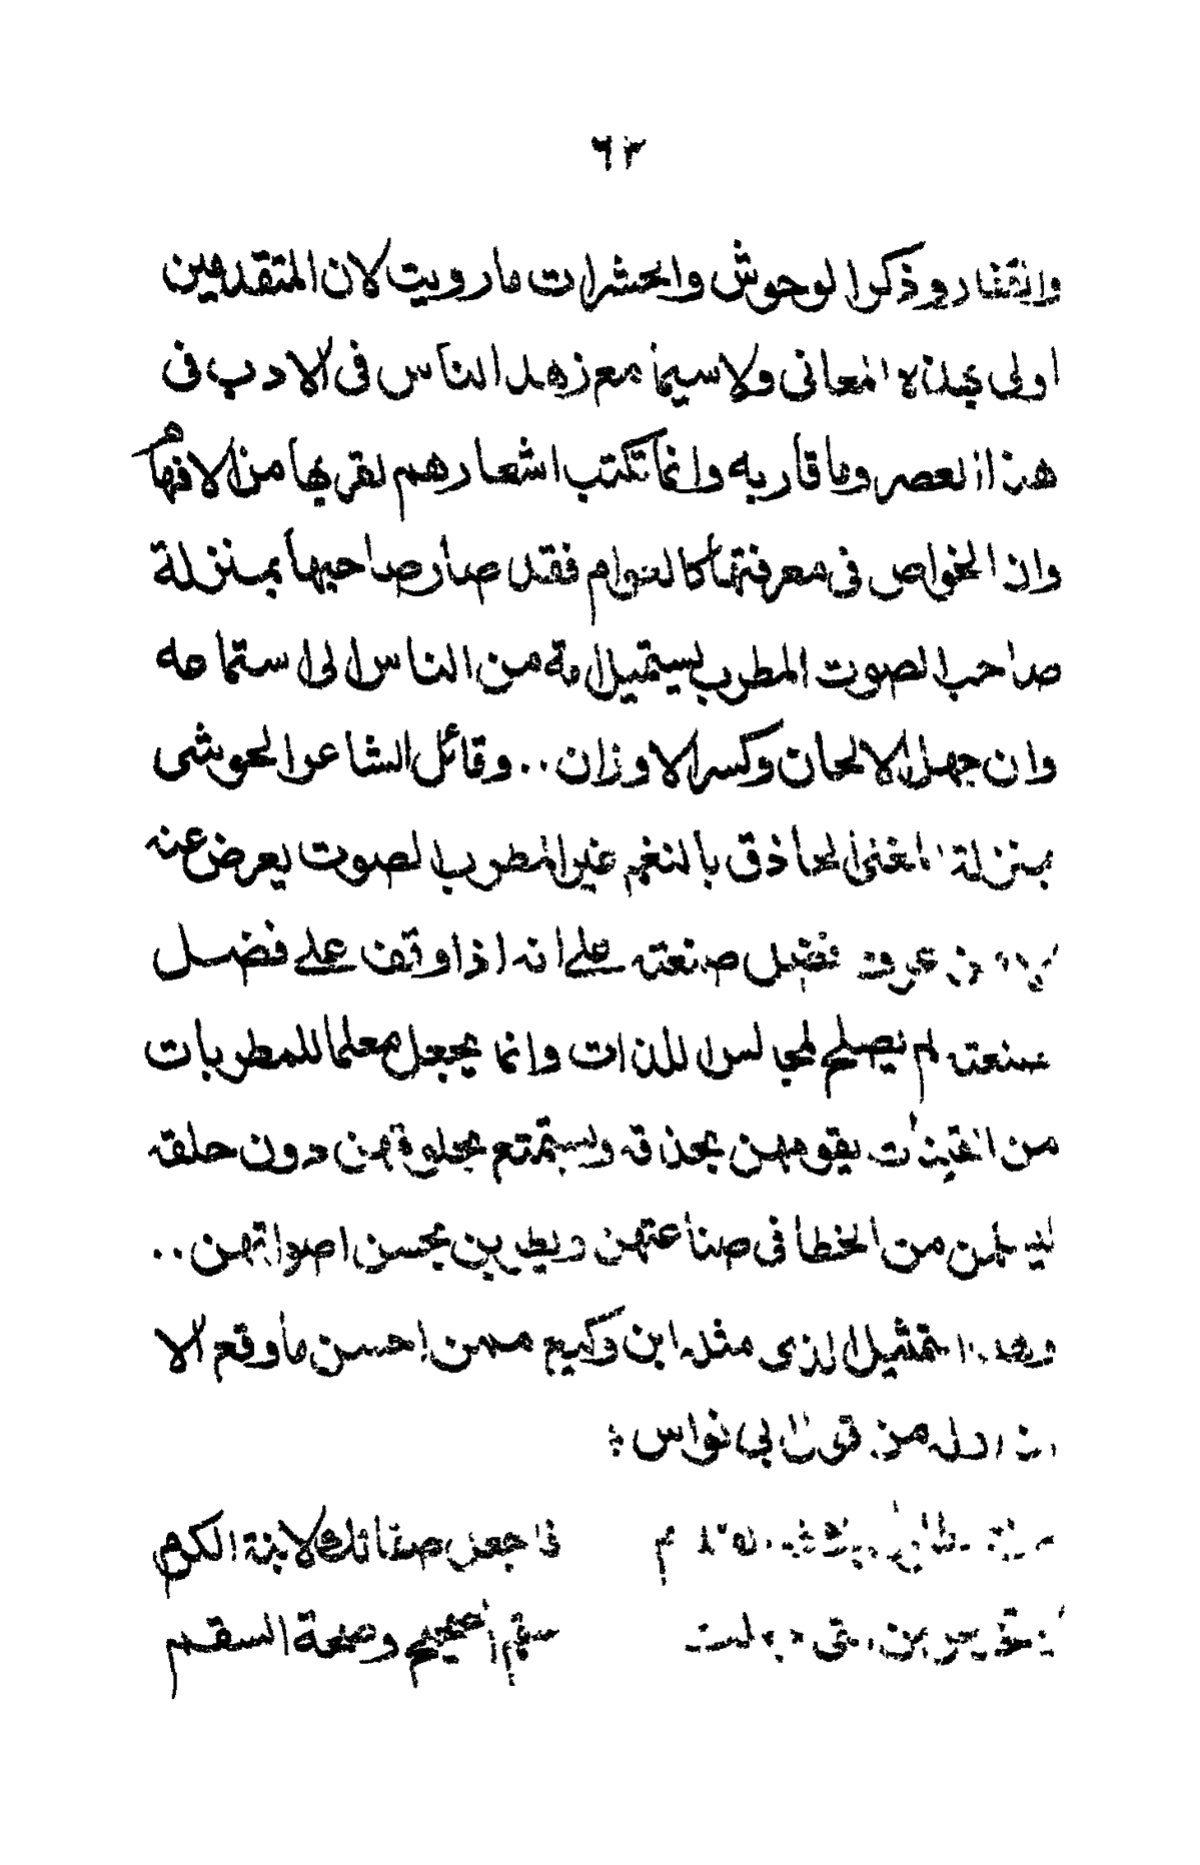 ٦٣
والقفار وذكر الوحوش والحشرات ما رويت لان المتقدمين
اولى بهذه المعاني ولا سيما مع زهد الناس فى الادب فى
هذا العصر وما قاربه وانما تكتب اشعارهم لقربها من الافهام
وان الخواص فى معرفتها كالعوام فقد صار صاحبها بمنزلة
صاحب الصوت المطرب يستميل امة من الناس الى استماعه
وان جهل الالحان وكسر الاوزان .. وقائل الشاعر الحوشى
بمنزلة المغنى الحاذق بالنغم غير المطرب الصوت يعرض عنه
الا من عرف فضل صنعته على انه اذا وقف على فضل
صنعته لم يصلح لمجالس اللذات وانما يجعل معلما للمطربات
من القينات يقومهن بحذاقه ويستمتع بحلوقهن دون حلقه
ليسلمن من الخطا فى صناعتهن ويطربن بحسن اصواتهن ..
وهذا التمثيل الذى مثله ابن وكيع من احسن ما وقع الا
من قول ابي نواس :
فاجعل صفاتك لابنة الكرم
سقم الصحيح وصحة السقم